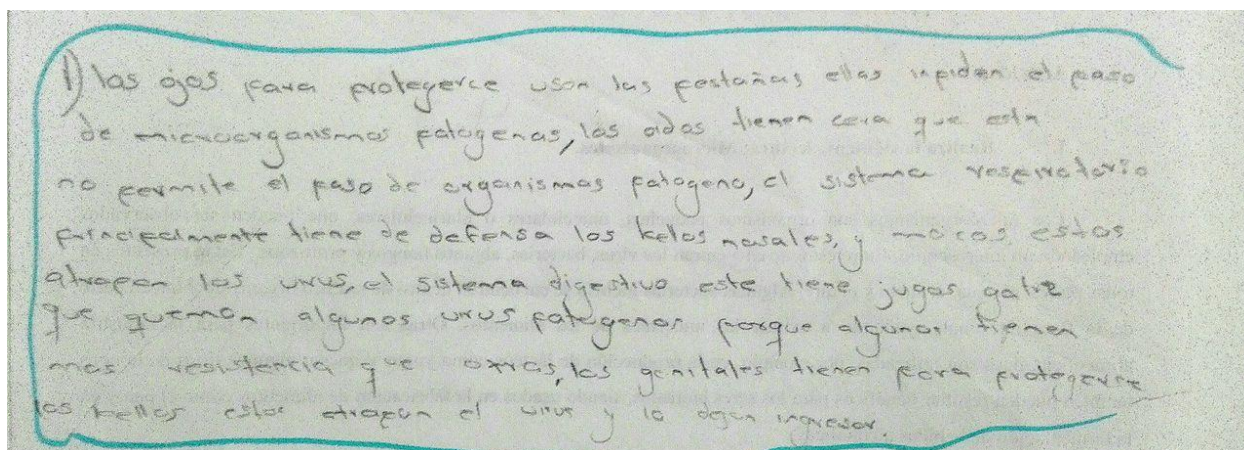 1) los ojos para protegerce usan las pestañas ellas inpiden el paso
de microorganismos patogenos, los oidos tienen cera que esta
no permite el paso de organismos patogeno, el sistema respiratorio
principalmente tiene de defensa los belos nasales, y mocos estos
atrapan los virus, el sistema digestivo este tiene jugos
que queman algunos virus patogenos porque algunos tienen
mas resistencia que otros, los genitales tienen para protegerce
los bellos estos atrapan el virus y lo dejan ingresar.